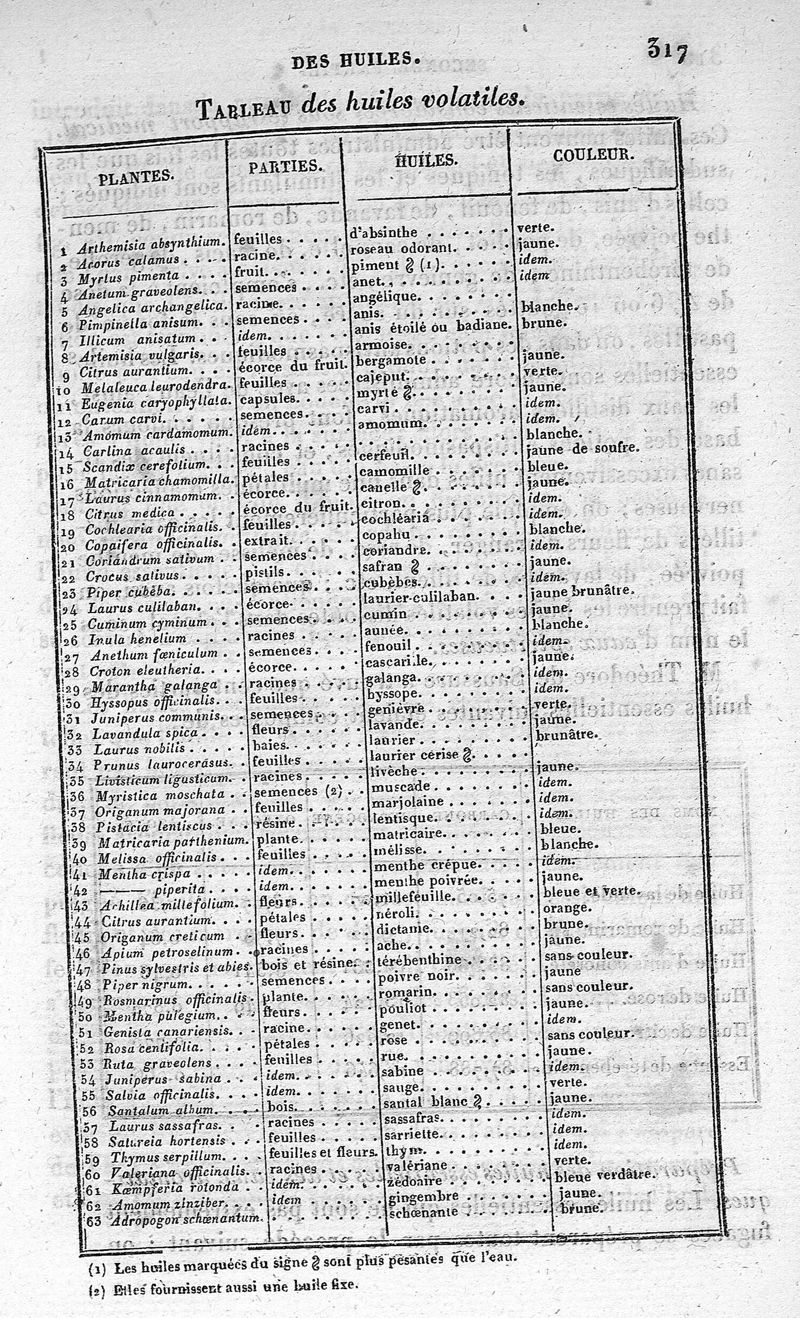 DES HUILES. 317
TABLEAU des huiles volatiles.
PLANTES. PARTIES. HUILES. COULEUR.
1 Arthemisia absynthium. feuilles . . . . . d'absinthe . . . . . . verte.
2 Acorus calamus . . . . racine. . . . . . roseau odorant. . . . . jaune.
3 Myrtus pimenta . . . . fruit. . . . . . piment ჯ (1). . . . . . idem.
4 Anetum graveolens. . . semences . . . . anet. . . . . . . . . idem
5 Angelica archangelica. racine. . . . . . angélique. . . . . . .
6 Pimpinella anisum. . . semences . . . . anis. . . . . . . . . blanche.
7 Illicum anisatum . . . idem. . . . . . anis étoilé ou badiane. brune.
8 Artemisia vulgaris. . . feuilles . . . . . armoise. . . . . . . .
9 Citrus aurantium. . . . écorce du fruit. bergamote . . . . . . jaune.
10 Melaleuca leurodendra. feuilles . . . . . cajeput. . . . . . . . verte.
11 Eugenia caryophyllata. capsules. . . . . myrte ჯ. . . . . . . . jaune.
12 Carum carvi. . . . . . semences. . . . . carvi . . . . . . . . . idem.
13 Amomum cardamomum. idem. . . . . . amomum. . . . . . . . idem.
14 Carlina acaulis . . . . racines . . . . . . . . . . . . . . . blanche.
15 Scandix cerefolium. . . feuilles . . . . . cerfeuil. . . . . . . . jaune de soufre.
16 Matricaria chamomilla. pétales . . . . . camomille . . . . . . bleue.
17 Laurus cinnamomum. . écorce. . . . . . canelle ჯ. . . . . . . jaune.
18 Citrus medica . . . . . écorce du fruit. citron. . . . . . . . . idem.
19 Cochlearia officinalis. . feuilles . . . . . cochléaria . . . . . . idem.
20 Copaifera officinalis. . extrait. . . . . . copahu . . . . . . . . blanche.
21 Coriandrum sativum . . semences . . . . coriandre. . . . . . . idem.
22 Crocus sativus. . . . . pistils. . . . . . safran ჯ . . . . . . . jaune.
23 Piper cubéba. . . . . . semences. . . . . cubèbes. . . . . . . . idem.
24 Laurus culilaban. . . . écorce. . . . . . laurier-culilaban. . . . jaune brunâtre.
25 Cuminum cyminum. . . semences. . . . . cumin . . . . . . . . jaune.
26 Inula henelium . . . . racines . . . . . aunée. . . . . . . . . blanche.
27 Anethum fœniculum . . semences. . . . . fenouil . . . . . . . . idem.
28 Croton eleutheria. . . . écorce. . . . . . cascarile. . . . . . . jaune.
29 Marantha galanga . . . racines . . . . . galanga. . . . . . . . idem.
30 Hyssopus officinalis. . . feuilles . . . . . hyssope. . . . . . . . idem.
31 Juniperus communis. . . semences. . . . . genièvre . . . . . . . verte.
32 Lavandula spica . . . . fleurs . . . . . . lavande. . . . . . . . jaune.
33 Laurus nobilis . . . . . baies. . . . . . laurier . . . . . . . . brunâtre.
34 Prunus laurocerasus. . feuilles . . . . . laurier cerise ჯ. . . . .
35 Livisticum ligusticum. . racines. . . . . . livêche. . . . . . . . jaune.
36 Myristica moschata . . semences (2) . . muscade. . . . . . . . idem.
37 Origanum majorana . . feuilles . . . . . marjolaine . . . . . . idem.
38 Pistacia lentiscus . . . résine. . . . . . lentisque. . . . . . . . idem.
39 Matricaria parthenium. plante. . . . . . matricaire. . . . . . . bleue.
40 Melissa officinalis . . . feuilles . . . . . mélisse. . . . . . . . blanche.
41 Mentha crispa . . . . . idem. . . . . . menthe crépue. . . . . idem.
42 ——— piperita . . . . idem. . . . . . menthe poivrée. . . . . jaune.
43 Achillea millefolium. . . fleurs . . . . . . millefeuille. . . . . . . bleue et verte.
44 Citrus aurantium. . . . pétales . . . . . néroli. . . . . . . . . orange.
45 Origanum creticum . . fleurs. . . . . . dictame. . . . . . . . brune.
46 Apium petroselinum . . racines . . . . . ache. . . . . . . . . jaune.
47 Pinus sylvestris et abies. bois et résine. . térébenthine . . . . . sans couleur.
48 Piper nigrum. . . . . . semences . . . . poivre noir. . . . . . . jaune
49 Rosmarinus officinalis . plante. . . . . . romarin. . . . . . . . sans couleur.
50 Mentha pulegium. . . . fleurs. . . . . . pouliot . . . . . . . . jaune.
51 Genista canariensis. . . racine. . . . . . genet. . . . . . . . . idem.
52 Rosa centifolia. . . . . pétales . . . . . rose . . . . . . . . . sans couleur.
53 Ruta graveolens . . . . feuilles . . . . . rue. . . . . . . . . . jaune.
54 Juniperus sabina . . . . idem. . . . . . sabine . . . . . . . . idem.
55 Salvia officinalis. . . . idem. . . . . . sauge. . . . . . . . . verte.
56 Santalum album. . . . bois. . . . . . santal blanc ჯ . . . . . jaune.
57 Laurus sassafras. . . . racines . . . . . sassafras. . . . . . . . idem.
58 Satureia hortensis . . . feuilles . . . . . sarriette. . . . . . . . idem.
59 Thymus serpillum. . . . feuilles et fleurs. thym. . . . . . . . . idem.
60 Valeriana officinalis. . . racines . . . . . valériane . . . . . . . verte.
61 Kæmpferia rotonda . . idem. . . . . . zédoaire . . . . . . . bleue verdâtre.
62 Amomum zinziber. . . . idem . . . . . gingembre . . . . . . jaune.
63 Adropogon schœnantum. . . . . . . . schœnante . . . . . . brune.
(1) Les huiles marquées du signe ჯ sont plus pesantes que l'eau.
(2) Elles fournissent aussi une huile fixe.